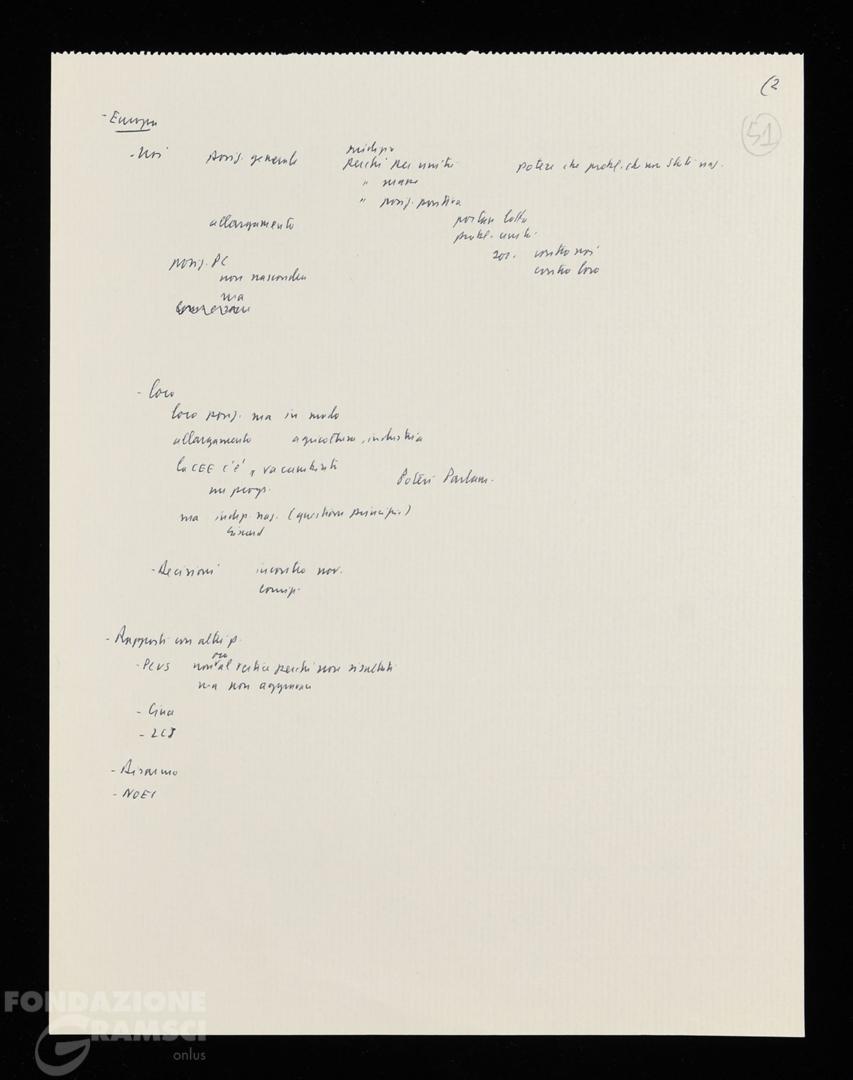 (2
51
- Europa
- Noi posiz. generale
perché per unità
" mare
" posiz. positiva
potere che probl. che non stati naz.
allargamento
portare lotta
probl. unità
soc. contro noi
contro loro
posiz. PC
non nascondere
ma
- Loro
loro posiz. ma in modo
allargamento agricoltura, industria
la CEE c'è, va cambiata
Poteri Parlam.
ma indip. naz. (questione principio)
- Decisioni incontro nov.
comip.
- Rapporti con altri p.
- PCUS non al vertice perché non risultati
ma non
- Cina
- LCJ
- Disarmo
- NOEI
FONDAZIONE
GRAMSCI
onlus